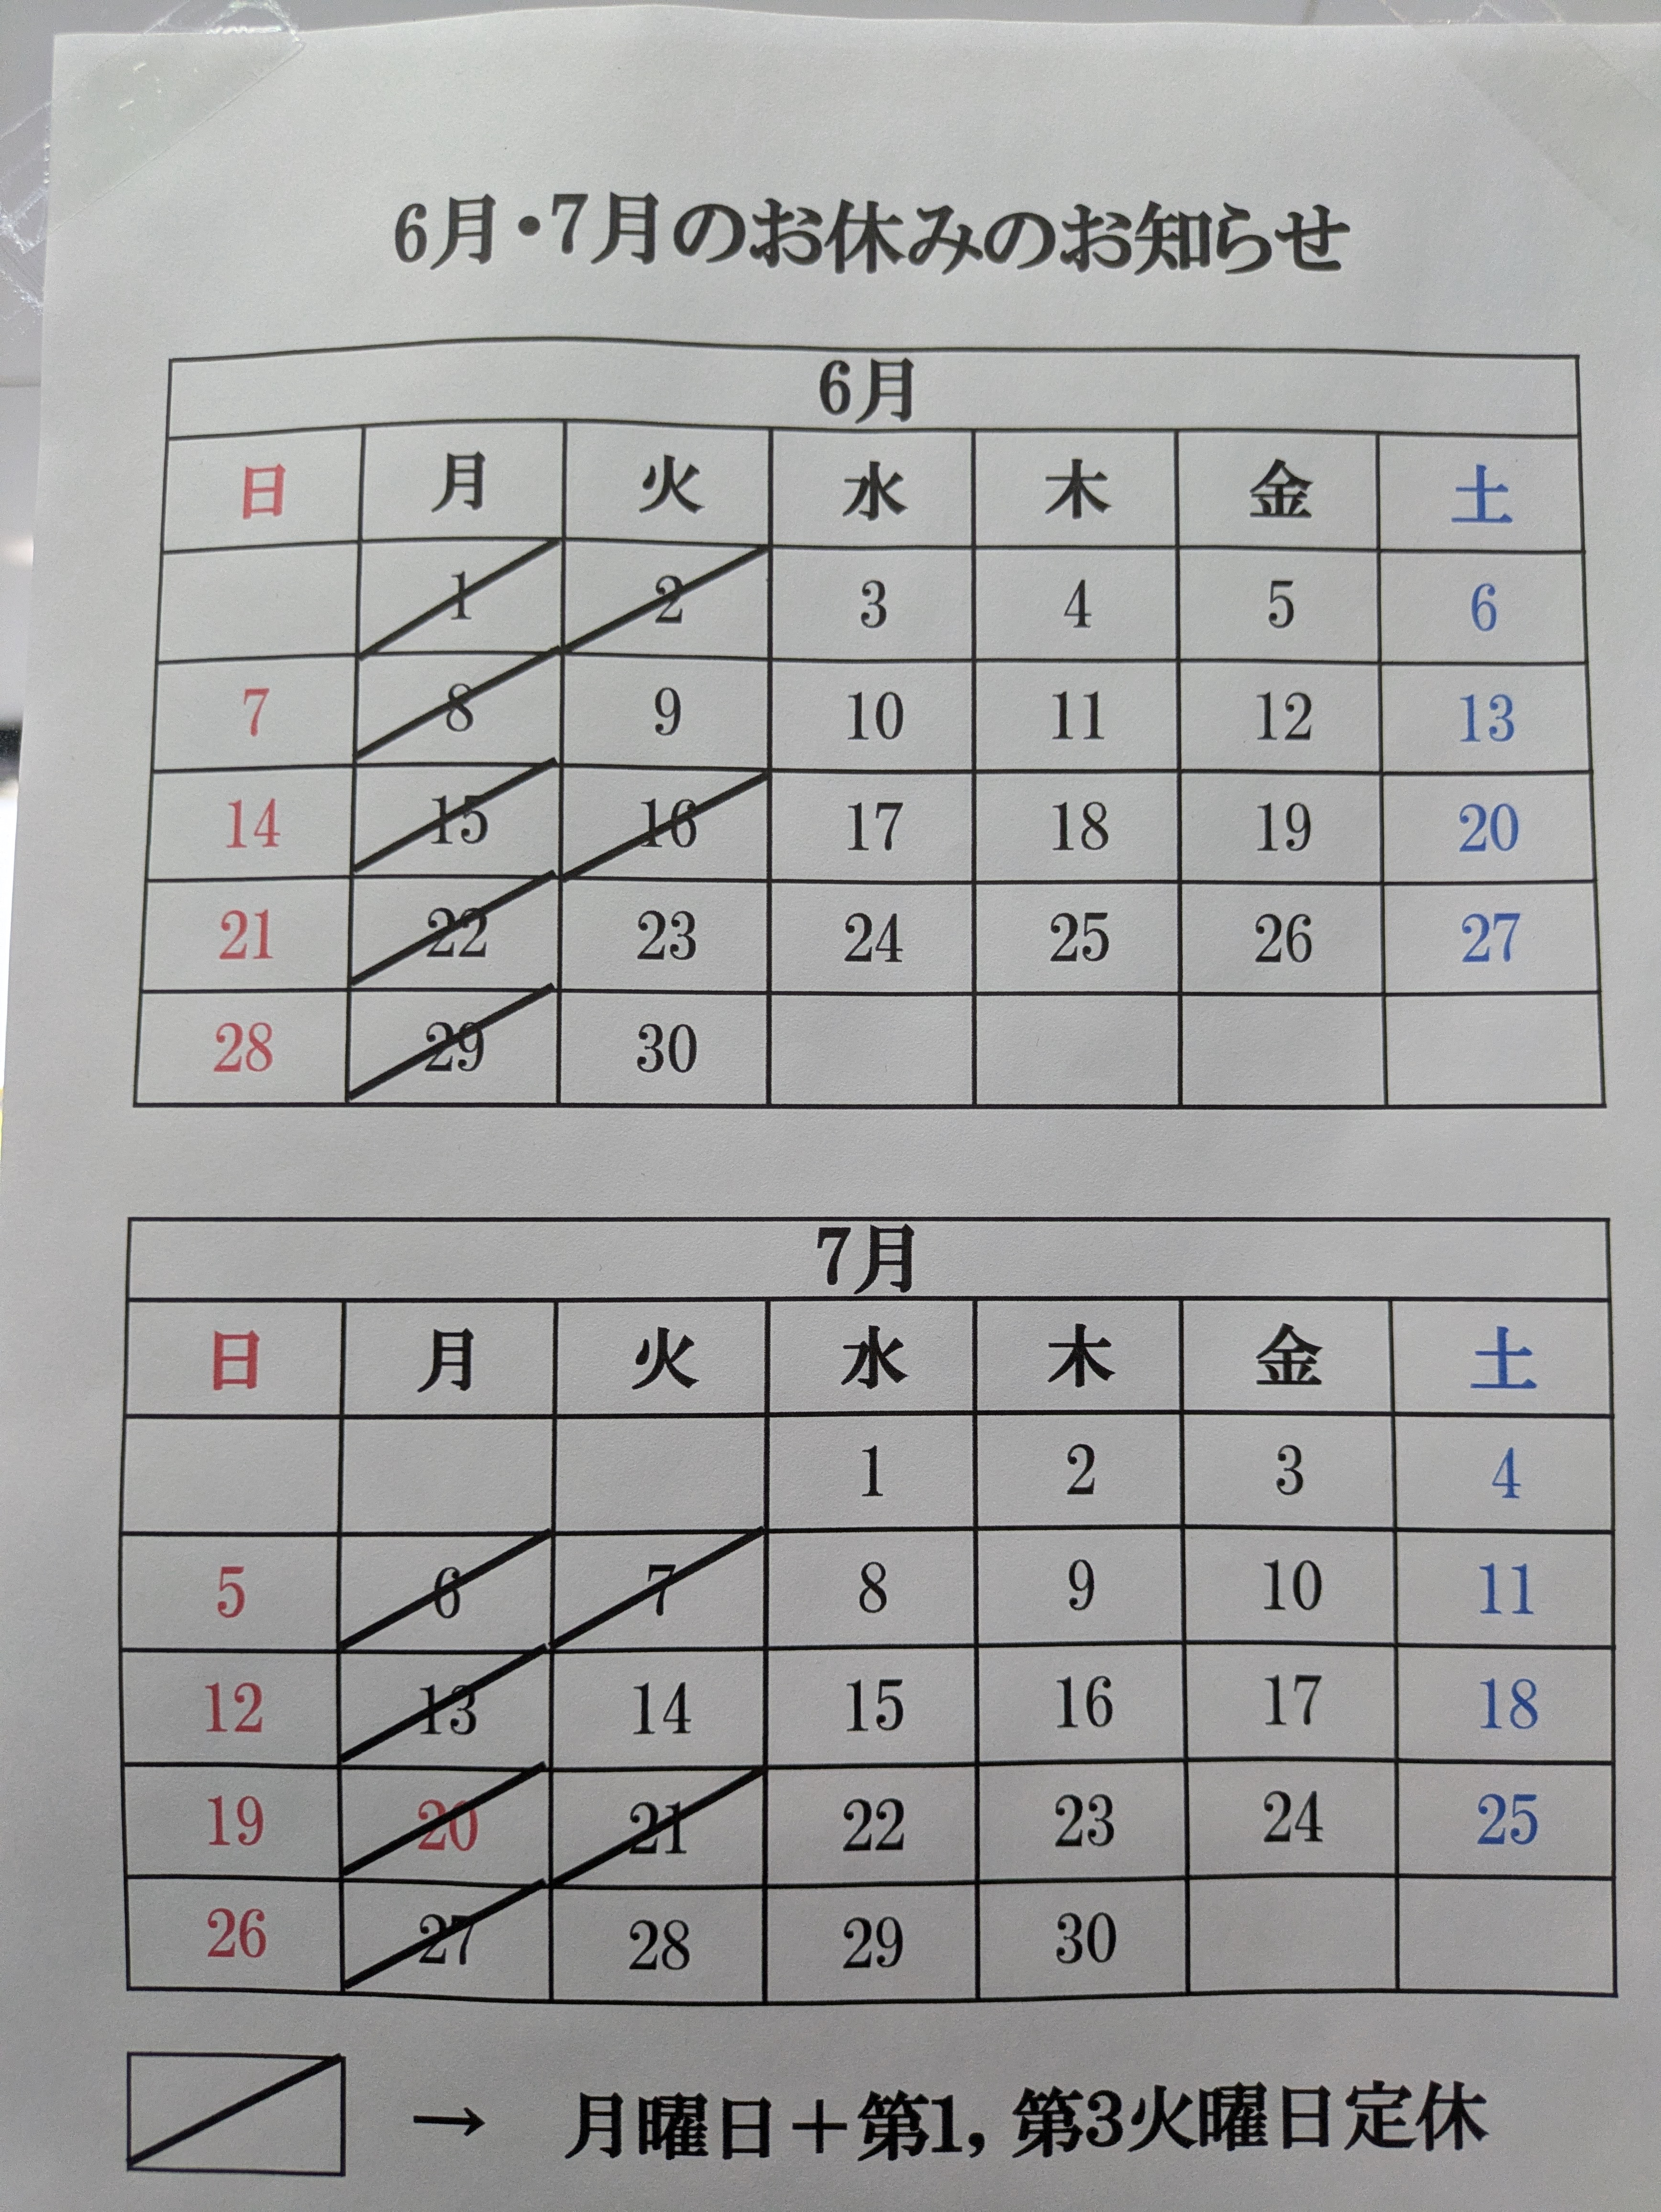 6月・7月のお休みのお知らせ
6月
日 月 火 水 木 金 土
1 2 3 4 5 6
7 8 9 10 11 12 13
14 15 16 17 18 19 20
21 22 23 24 25 26 27
28 29 30
7月
日 月 火 水 木 金 土
1 2 3 4
5 6 7 8 9 10 11
12 13 14 15 16 17 18
19 20 21 22 23 24 25
26 27 28 29 30
→ 月曜日＋第1, 第3火曜日定休